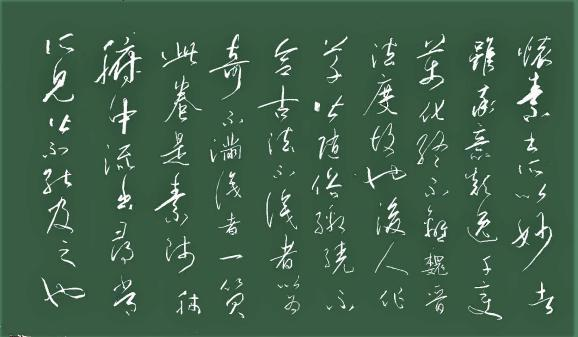 懷素書所以妙者
雖率意顛逸千變
萬化終不離魏晉
法度故也後人作
草皆隨俗繳繞不
合古法不識者以為
奇不滿識者一笑
此卷是素師肺
腑中流出尋常
所見皆不能及之也